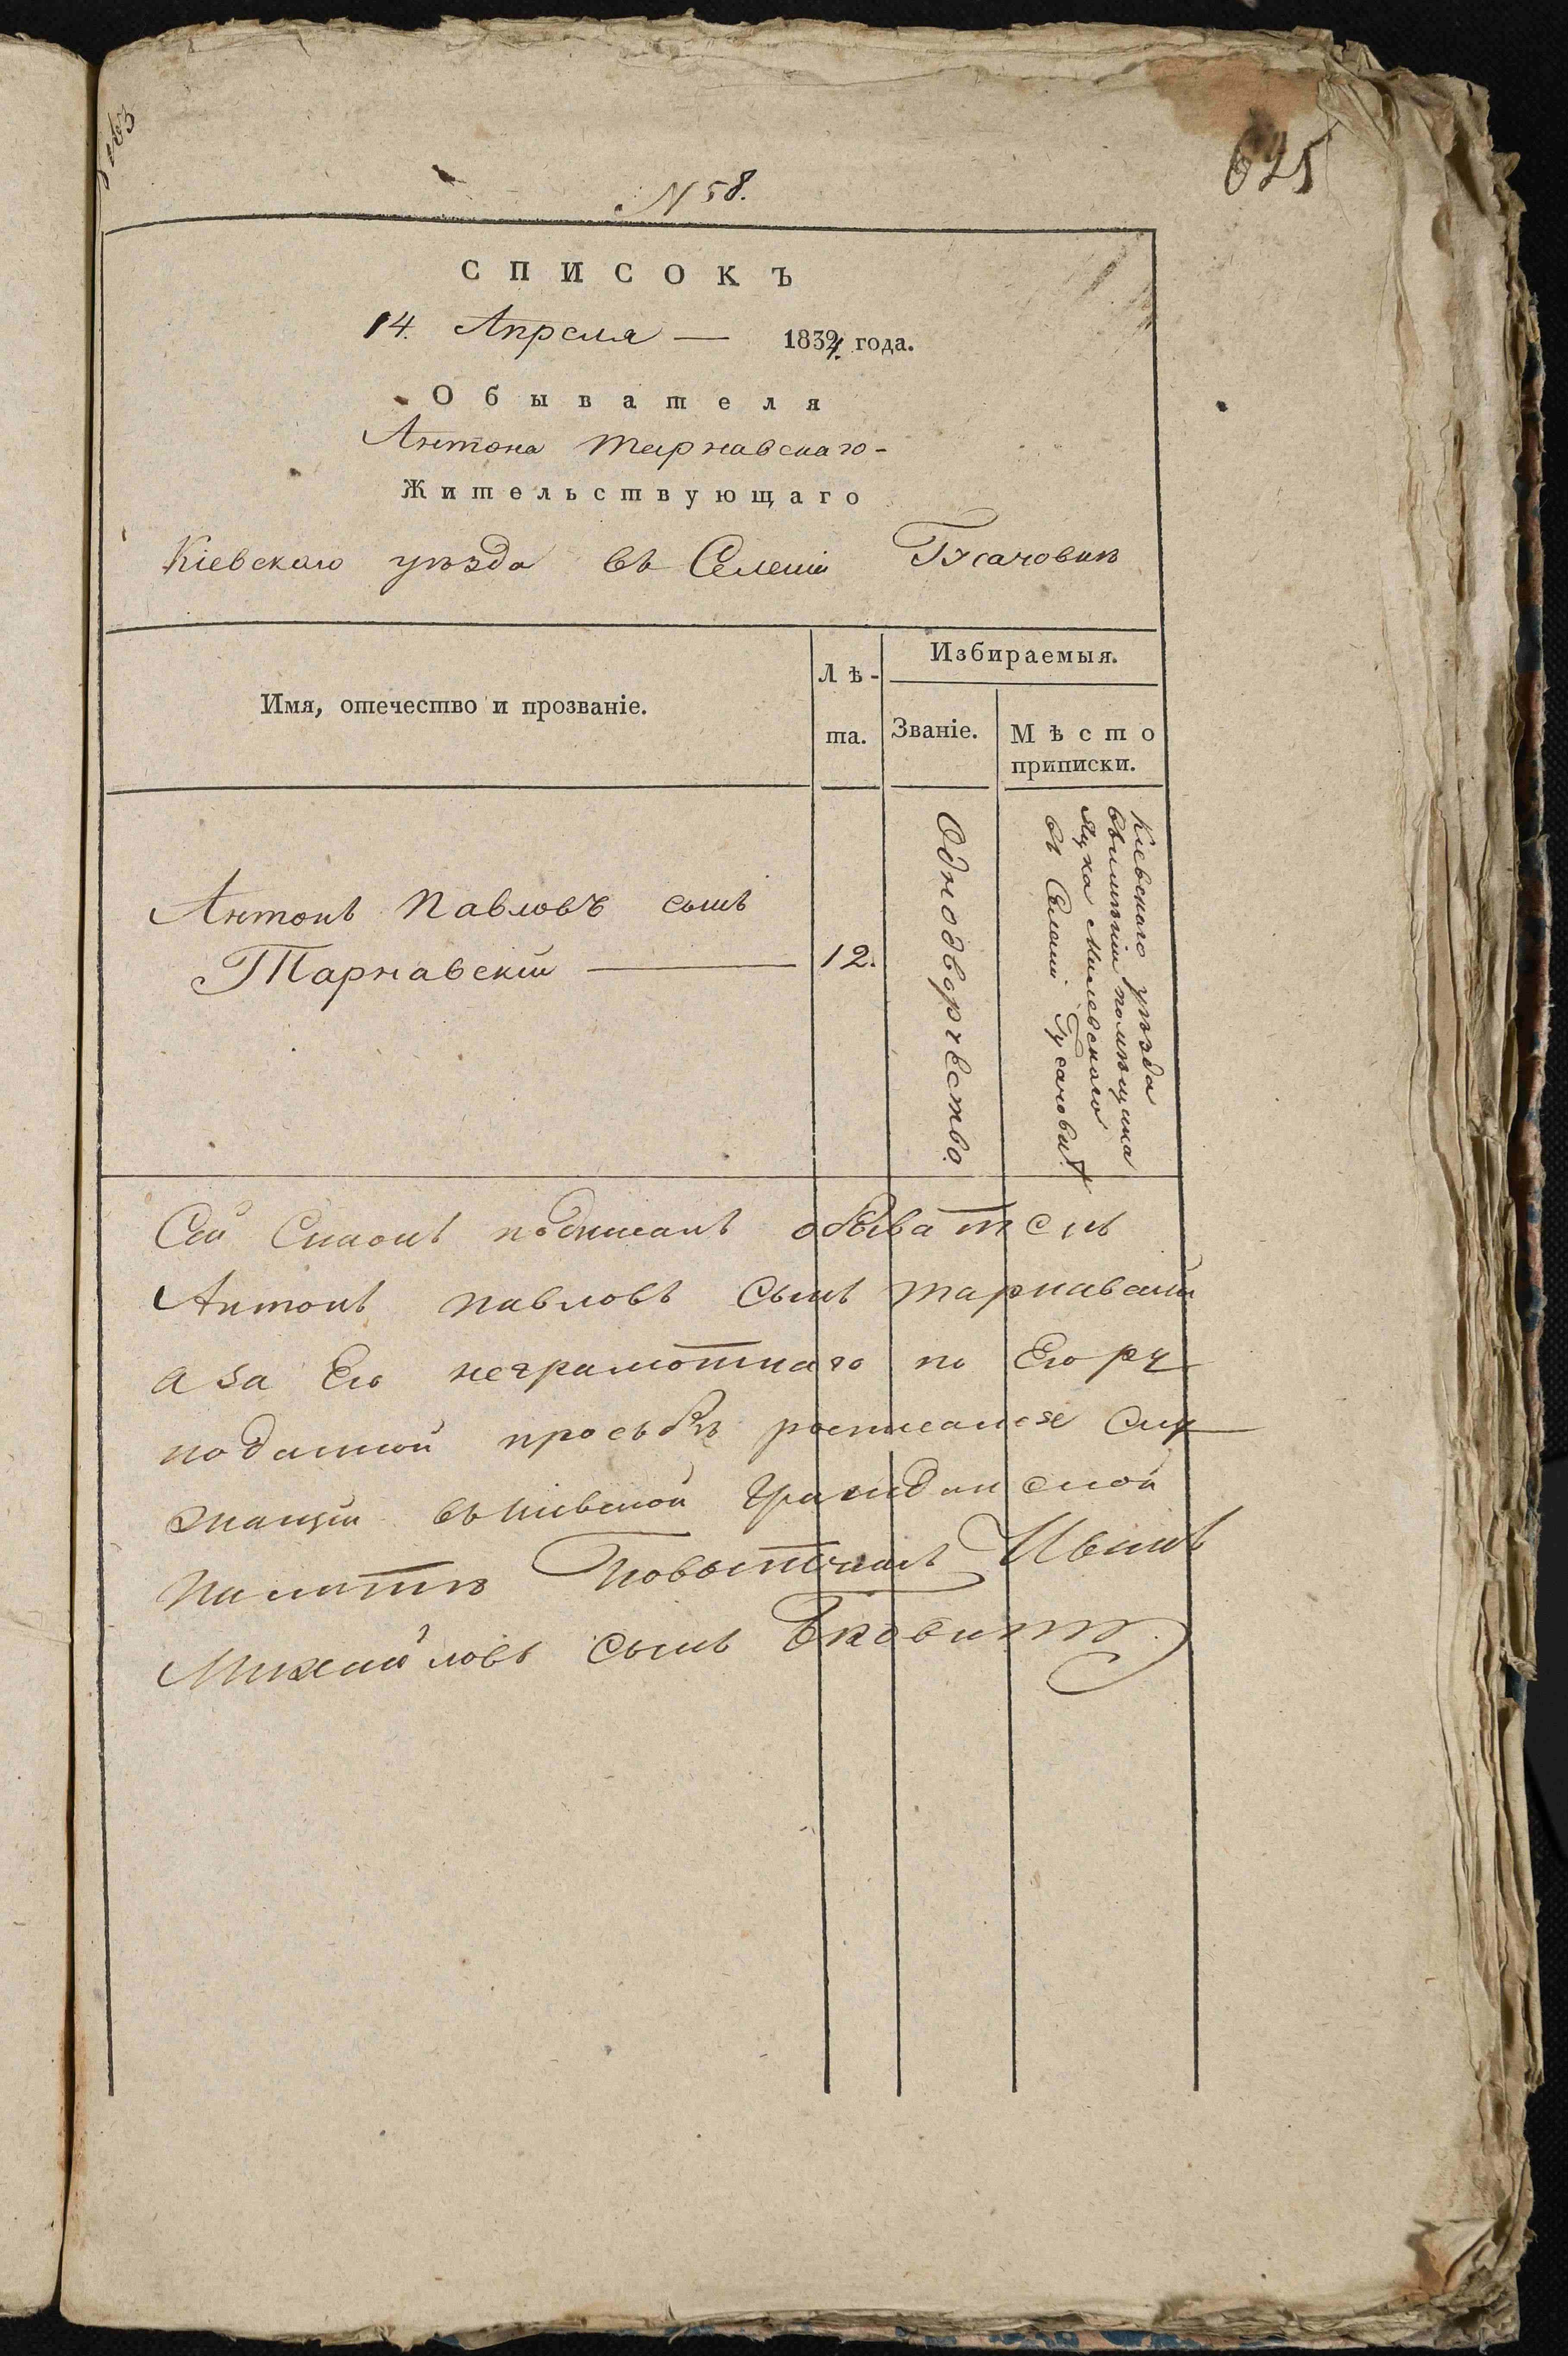 625
N 58.
СПИСОКЪ
14. Апреля — 1834. года.
Обывателя
Антона Тарнавскаго-
Жительствующаго
Кіевскаго уѣзда въ Селеніи
Имя, отечество и прозваніе.
Лѣ-
та.
Избираемыя.
Званіе.
Мѣсто
приписки.
Антонъ Павловъ сынъ
Тарнавскій
12.
Однодворчество.
Кіевскаго уѣзда
въ имѣніи помѣщика
Милевскаго
въ Селеніи
Сей Списокъ подписалъ обыватель
Антонъ Павловъ Сынъ Тарнавскій
а за Его неграмотнаго по Его ру
коданной просьбѣ росписался Слу
жащій въ Кіевской Гражданской
Палатѣ Повытчикъ Иванъ
Михайловъ Сынъ